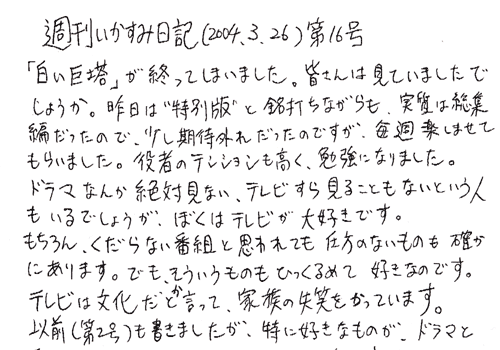 週刊いかすみ日記(2004.3.26)第16号
「白い巨塔」が終ってしまいました。皆さんは見ていましたで
しょうか。昨日は"特別版"と銘打ちながらも、実質は総集
編だったので、少し期待外れだったのですが、毎週楽しませて
もらいました。役者のテンションも高く、勉強になりました。
ドラマなんか絶対見ない、テレビすら見ることもないという人
もいるでしょうが、ぼくはテレビが大好きです。
もちろん、くだらない番組と思われても仕方のないものも確か
にあります。でも、そういうものもひっくるめて好きなのです。
テレビは文化だとか言って、家族の失笑をかっています。
以前(第2号)も書きましたが、特に好きなものが、ドラマと